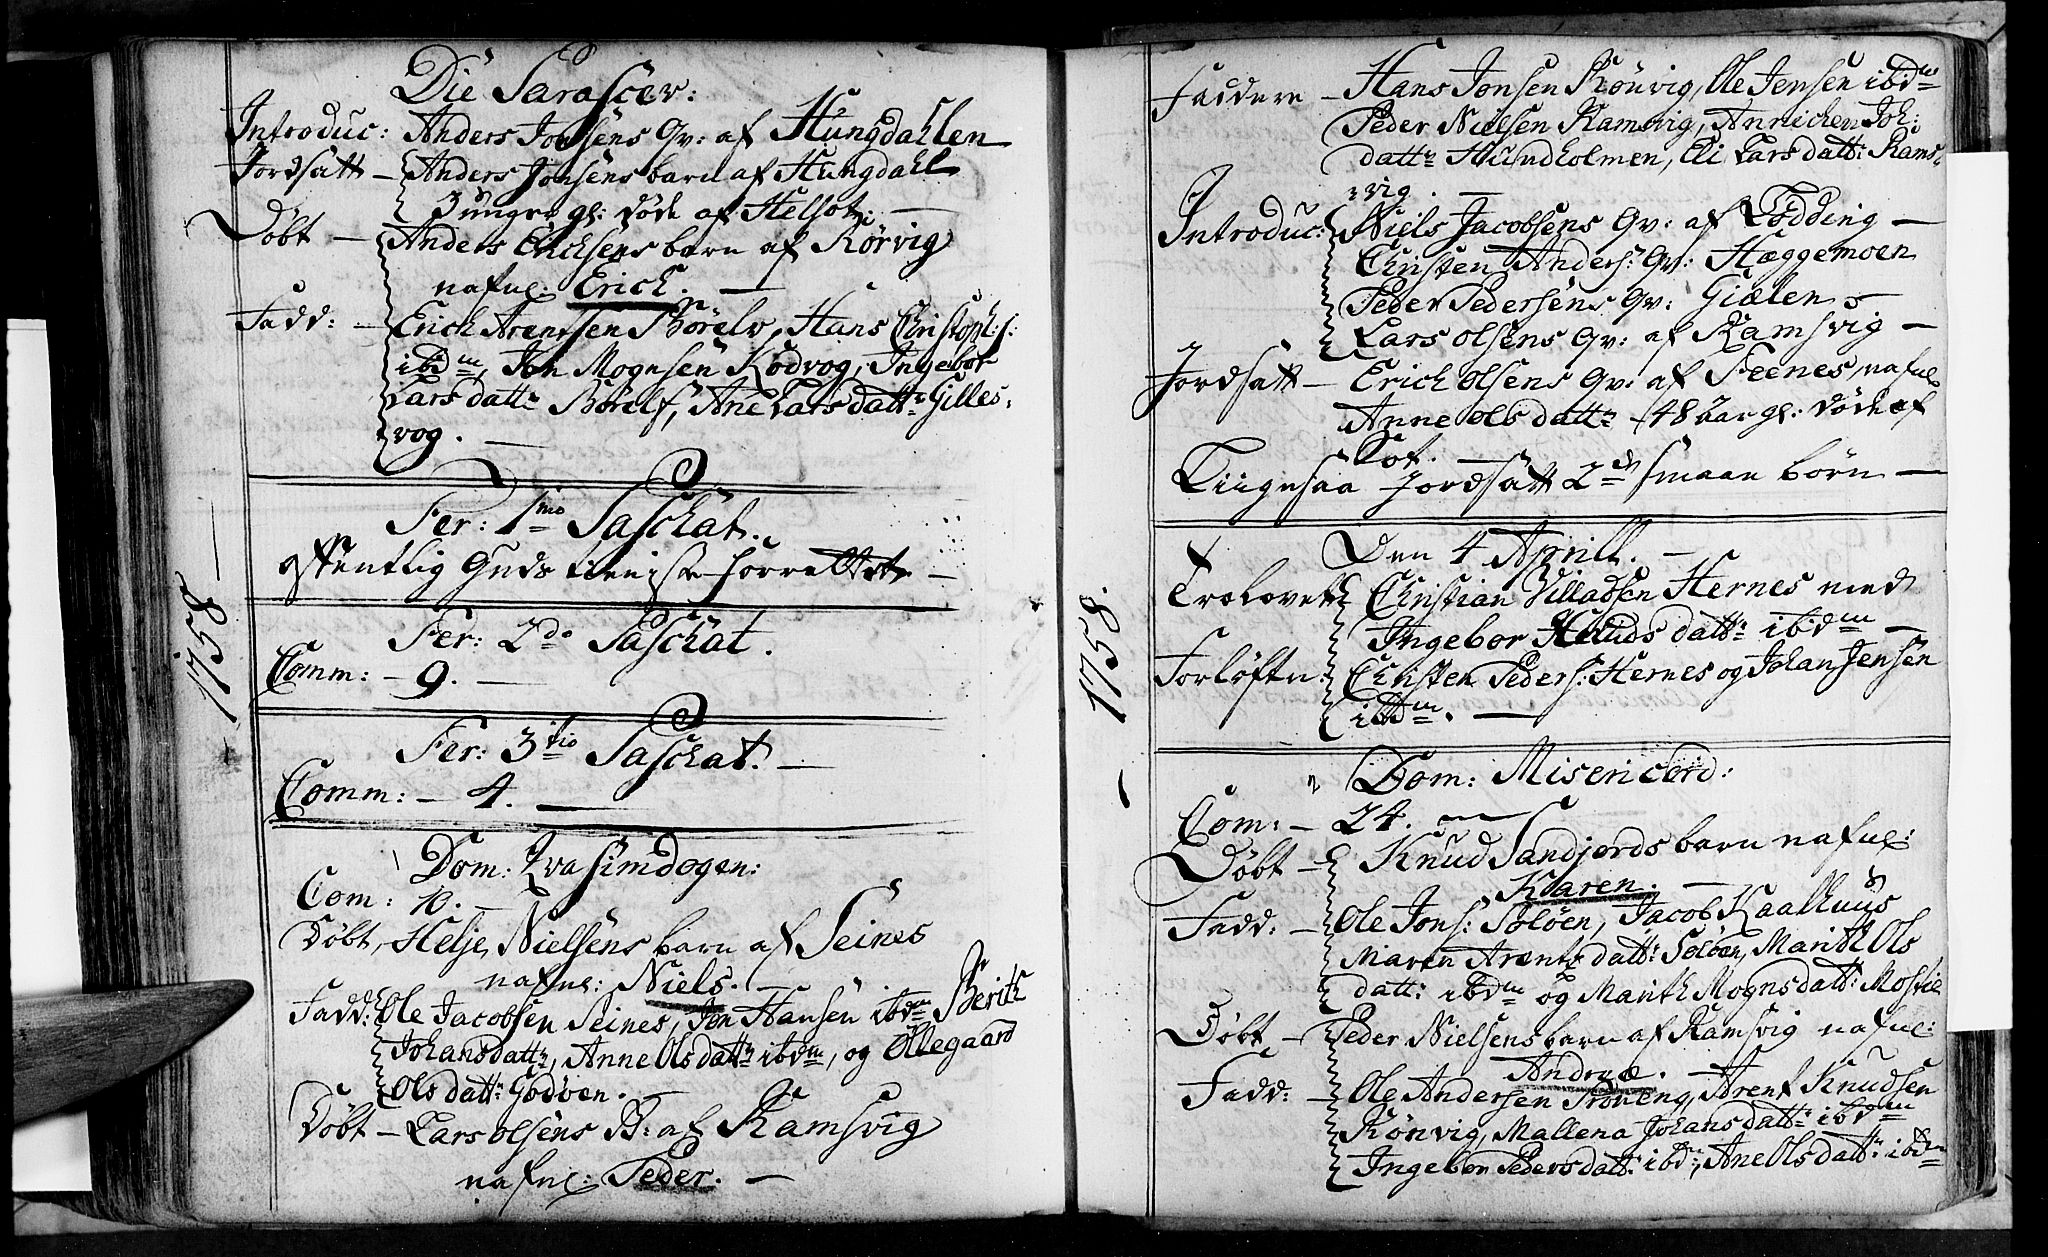 1758
Die Parascev:
Introduc: Anders Jonsens Qv: af Hungdahlen
Jordsatt – Anders Jonsens barn af Hungdahl
3 uger gl: døde af Helsot:
Døbt – Anders Erichsens barn af Rørvig
nafnl. Erich.
Fadd: – Erich Arentsen Børelv, Hans Christoph:s:
ibdm, Jon Mognsen Kodvog, Ingebor
Lars datter Børelf, Ane Lars datter Gilles-
vog.
Fer: 1mo Paschat.
offentlig Guds tieniste forrettet –
Fer: 2do Paschat.
Comm: – 9. –
Fer: 3tio Paschat. –
Comm: – 4.
Dom: Qvasimdogen:
Com: 10. –
Døbt, Helje Nielsens barn af Seines
nafnl: Niels. –
Fadd: Ole Jacobsen Seines, Jon Hansen ibdm Berith
Johansdattr, Anne Olsdattr ibdm, og Ollegaard
Olsdattr Godøen. –
Døbt – Lars Olsens B: af Ramsvig
nafnl: Peder. –
1758.
Faddere – Hans Jonsen Rönvig, Ole Jensen ibdm
Peder Nielsen Ramsvig, Annichen Joh:
dattr Hundholmen, Eli Lars datt: Rams-
vig.
Introduc: Niels Jacobsens Qv: af Lødding –
Christen Anders: Qv: Hæggemoen
Peder Pedersens Qv: Gielen –
Lars Olsens Qv: af Ramsvig –
Jordsatt – Erich Olsens Qv: af Feenes, nafnl
Anne Olsdattr – 48 aar gl: døde af
Sot.
Ligesaa Jordsatt 2de smaae børn –
Den 4 Aprill. –
Trolovet Christian Villadsen Hernes med
Ingebor Knuds datt: ibidm –
Forløftr: Christen Peders: Hernes og Johan Jensen
ibdm. –
Dom: Misericord:
Com: – 24.
Døbt – Knud Sandjords barn nafnl:
Karen. –
Fadd: – Ole Jons: Soløen, Jacob Kaalhuus
Maren Arentsdatt: Soløen, Marith Ols
datt: ibdm og Marith Mognsdatt: Mostie
Døbt – Peder Nielsens barn af Ramsvig nafnl:
Andreæ. –
Fadd: – Ole Andersen Trøneng, Arent Knudsen
Rönvig, Mallena Johansdatt: ibdm
Ingebor Pedersdatt: ibd:, Ane Olsdatt: ibdm